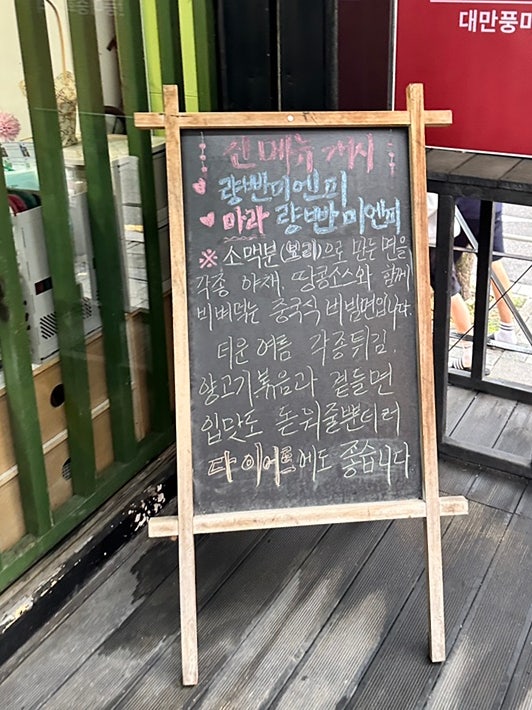 대만풍미
신메뉴 개시
량빤미엔피
마라 량빤미엔피
※ 소맥분(보리)으로 만든 면을
각종 야채, 땅콩소스와 함께
비벼먹는 중국식 비빔면입니다.
더운 여름 각종튀김,
양고기볶음과 곁들면
입맛도 돋워줄뿐더러
다이어트에도 좋습니다